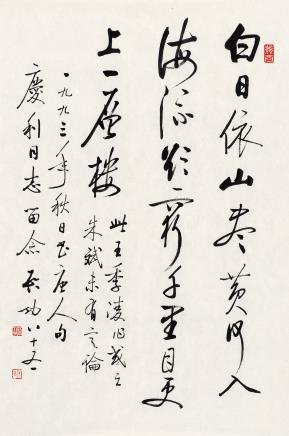 白日依山盡黄河入
海流欲窮千里目更
上一層樓
此王季凌作或云
朱斌未有定論
一九九三年秋日書唐人句
慶利同志留念 启功八十又一